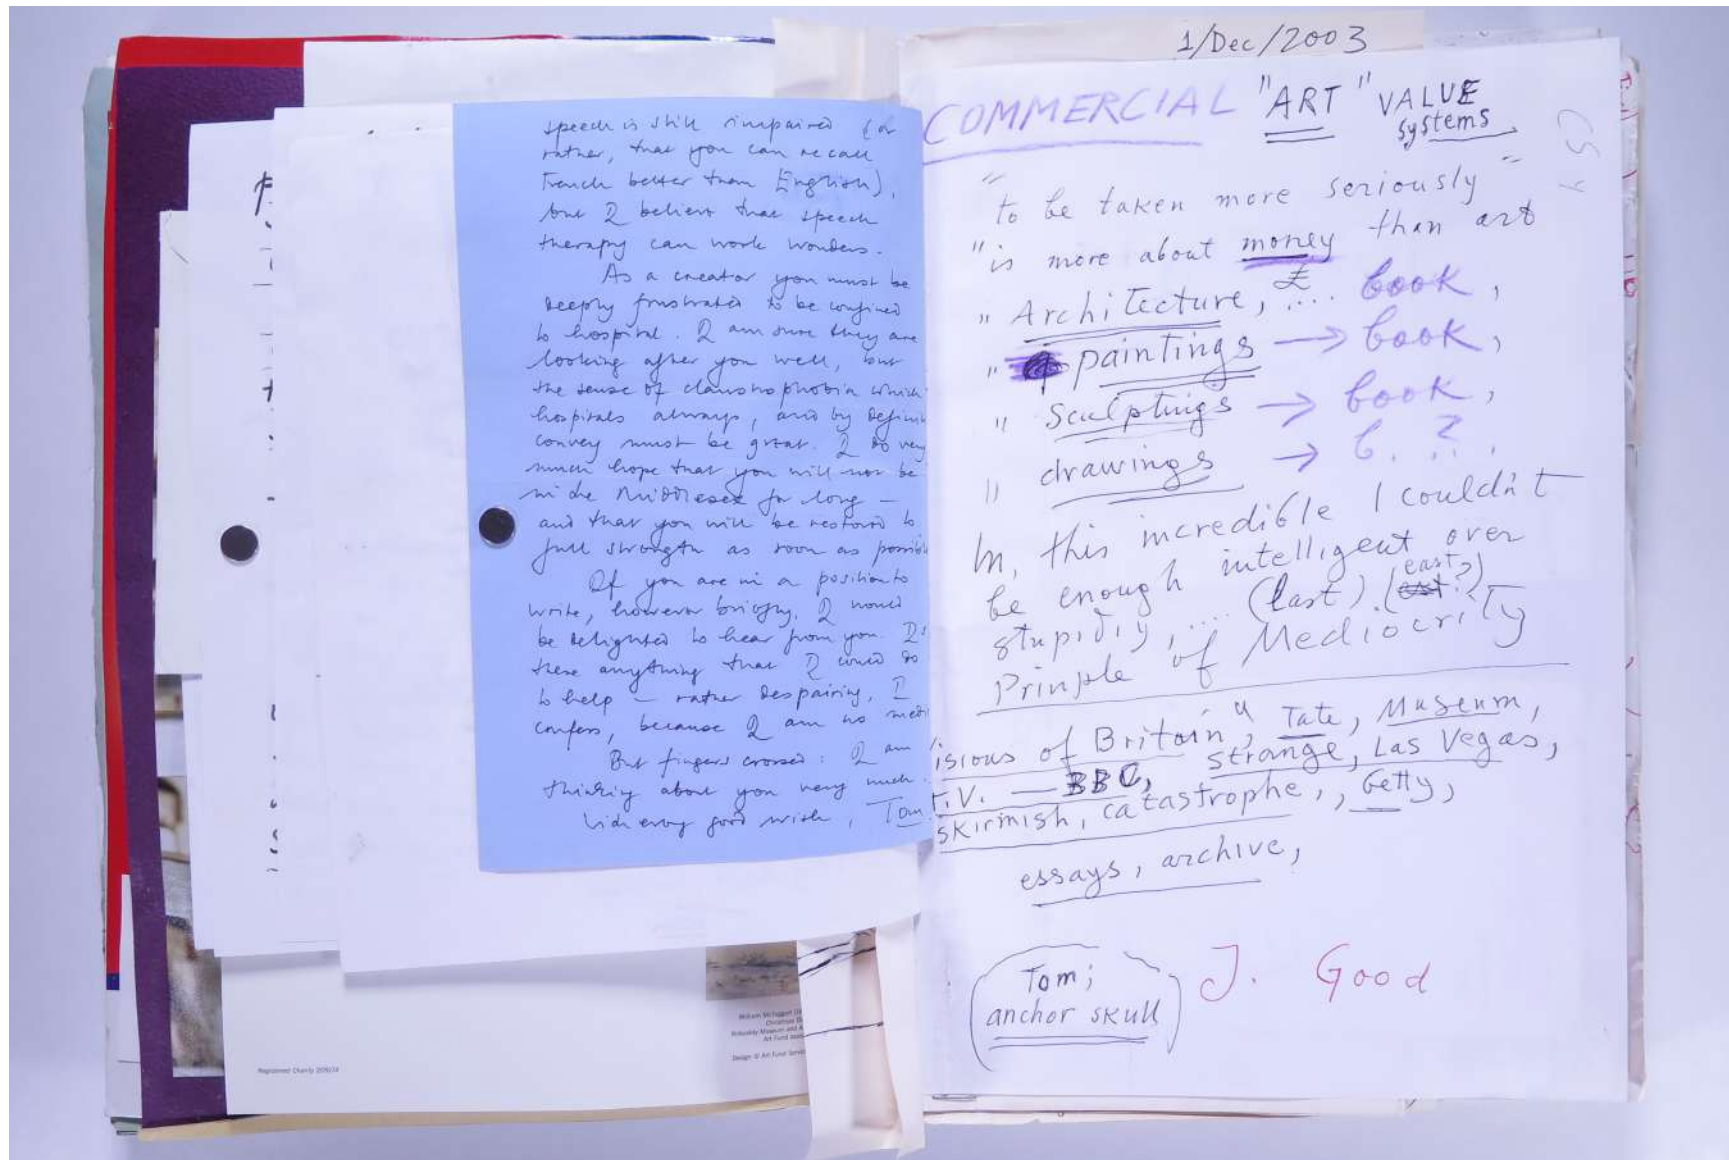 speech is still impaired (or
rather, that you can recall
French better than English),
but I believe that speech
therapy can work wonders.
As a creator you must be
deeply frustrated to be confined
to hospital. I am sure they are
looking after you well, but
the sense of claustrophobia which
hospitals always, and by
convey must be great. I do very
much hope that you will not be
in the Middlesex for long —
and that you will be restored to
full strength as soon as
If you are in a position to
write, however briefly, I would
be delighted to hear from you. Is
there anything that I could do
to help — rather despairing, I
confess, because I am no
But fingers crossed: I am
thinking about you very much.
With every good wish, Tom.
1/Dec/2003
COMMERCIAL "ART" VALUE
systems
"to be taken more seriously"
"is more about money than art
£
" Architecture, .... book,
" paintings → book,
" sculptings → book,
" drawings → b. . ? . .
In, this incredible I couldn't
be enough intelligent over
stupidiy, .... (last). (east?)
Prinple of Mediocrity
isions of Britain", Tate, Museum,
T.V. — BBC, strange, Las Vegas,
skirmish, catastrophe,, Getty,
essays, archive,
Tom;
anchor skull
J. Good
Registered Charity 209174